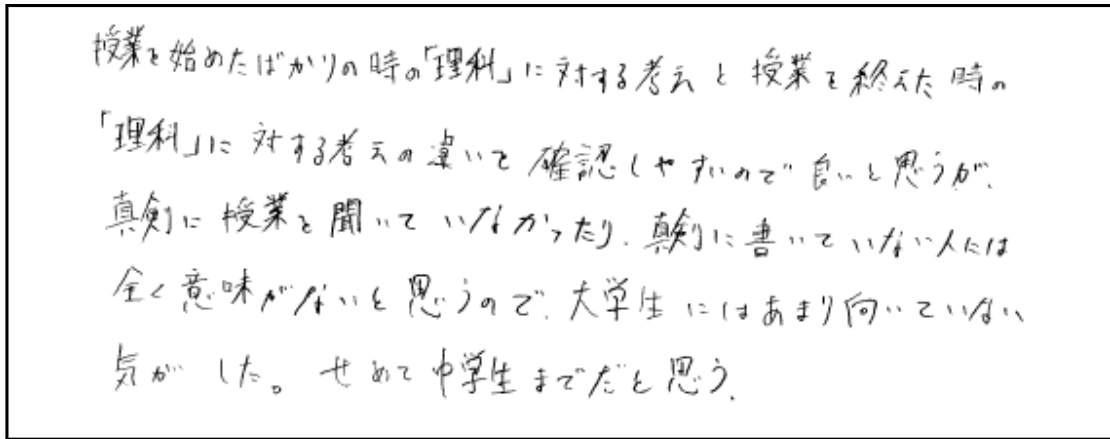 授業を始めたばかりの時の「理科」に対する考えと授業を終えた時の
「理科」に対する考えの違いを確認しやすいので良いと思うが、
真剣に授業を聞いていなかったり、真剣に書いていない人には
全く意味がないと思うので、大学生にはあまり向いていない
気がした。せめて中学生までだと思う。